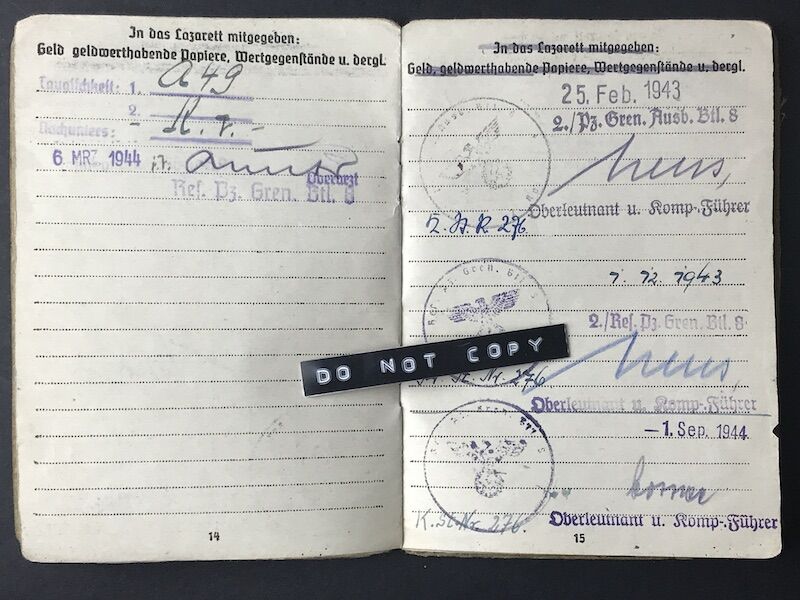 In das Lazarett mitgegeben:
Geld geldwerthabende Papiere, Wertgegenstände u. dergl.
Tauglichkeit: 1. A 49
2.
6. MRZ. 1944
Oberarzt
Res. Pz. Gren. Btl. 8
14
In das Lazarett mitgegeben:
Geld, geldwerthabende Papiere, Wertgegenstände u. dergl.
25. Feb. 1943
2./Pz. Gren. Ausb. Btl. 8
Oberleutnant u. Komp.-Führer
276
1. 12. 1943
2./Res. Pz. Gren. Btl. 8
DO NOT COPY
276
Oberleutnant u. Komp.-Führer
-1. Sep. 1944
K. St. Nr. 276.
Oberleutnant u. Komp.-Führer
15